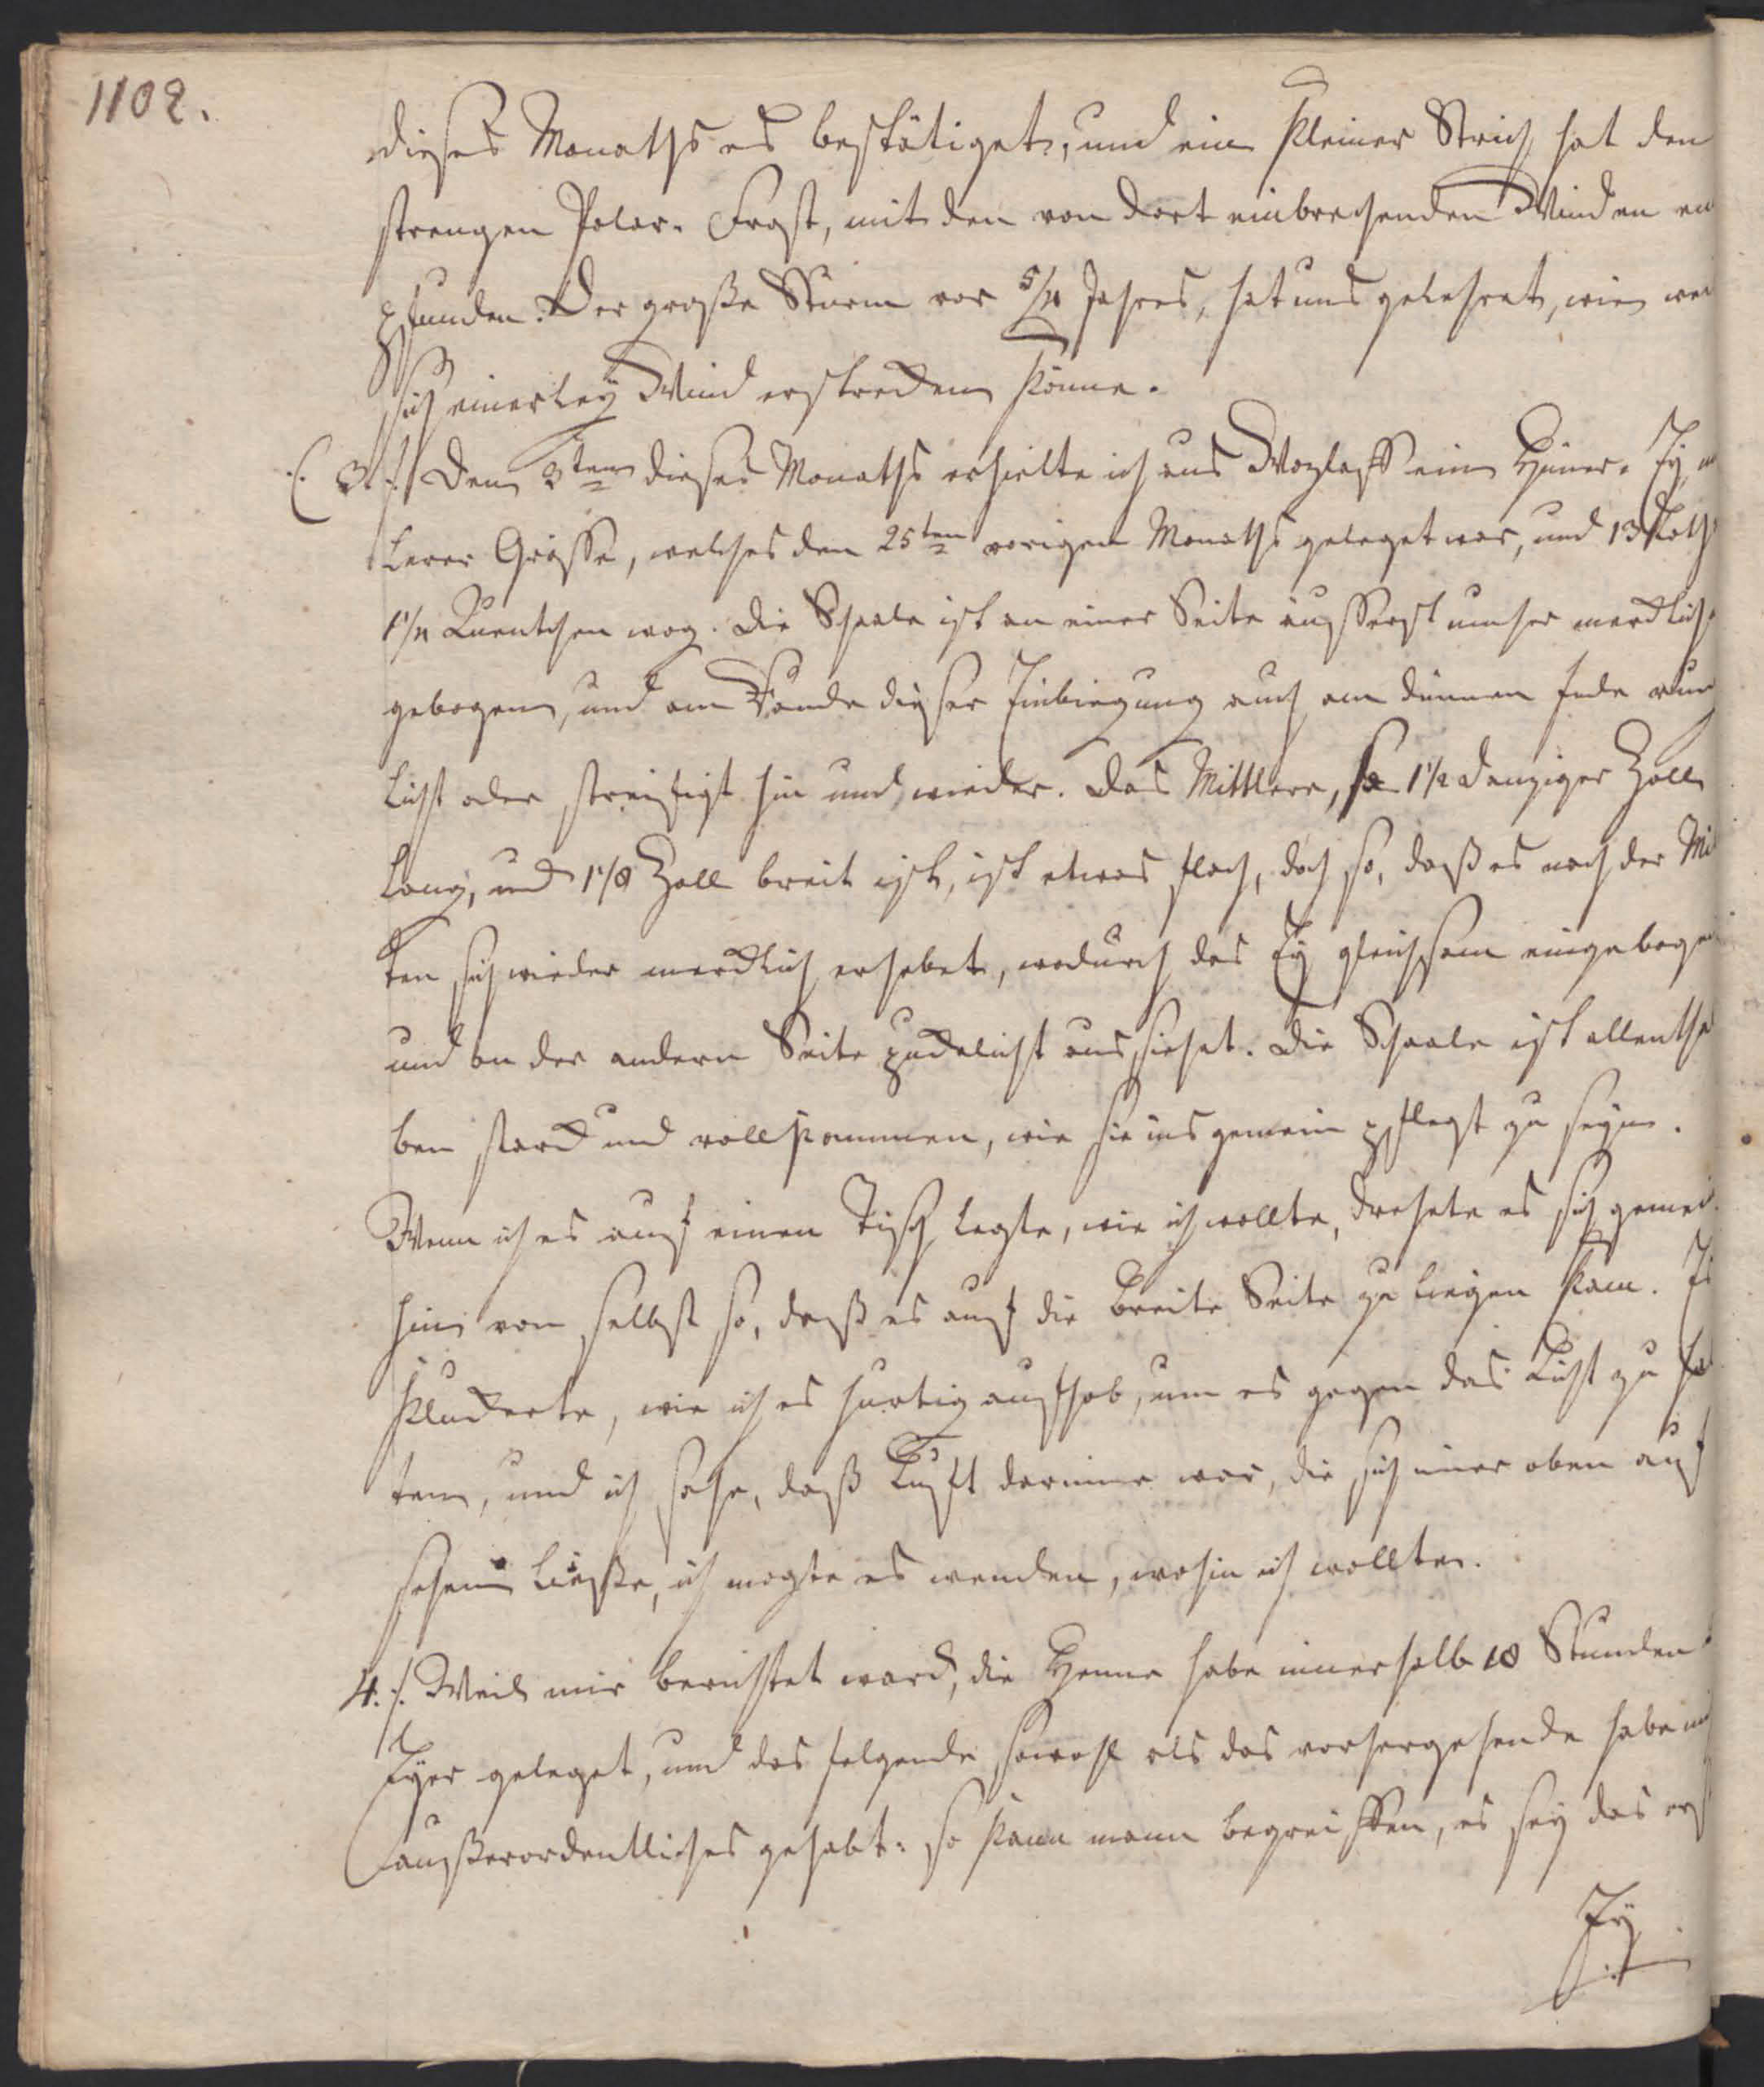 1102.
dieses Monaths es bestätiget, und ein kleiner Strich hat den
strengen Polar-Frost, mit den von dort einbrechenden Winden em
pfunden. Der große Sturm vor 5/4 Jahres, hat uns gelehret, wie wei
sich einerley Wind erstrecken könne.
3./. Den 3ten dieses Monaths erhielte ich aus Wozlaff ein Hüner-Ey, m
lerer Grösse, welches den 25ten vorigen Monaths geleget war, und 13 Loth
1 1/4 Quentchen wog. Die Schale ist an einer Seite äusserst umher mercklich
gebogen, und am Rande dieser Einbiegung auch am dünnen Ende run
licht oder streifigt hin und wieder. Das Mittlere, so 1 1/2 Danziger Zoll
lang, und 1 1/8 Zoll breit ist, ist etwas flach, doch so, daß es nach der Mi
ten sich wieder mercklich erhebet, wodurch das Ey gleichsam eingebogen
und an der andern Seite puckelicht aussiehet. Die Schaale ist allentha
ben starck und vollkommen, wie sie ins gemein pflegt zu seyn.
Wenn ich es auf einen Tisch legte, wie ich wollte, drehete es sich gemei
hin von selbst so, daß es auf die breite Seite zu liegen kam. Es
kluckerte, wie ich es hurtig aufhob, um es gegen das Licht zu hal
ten, und ich sahe, daß Luft darinne war, die sich imer oben auf
sehen ließe, ich mogte es wenden, wohin ich wollte.
4./. Weil mir berichtet ward, die Henne habe innerhalb 18 Stunden
Eyer geleget, und das folgende sowohl als das vorhergehende habe ni
außerordentliches gehabt: so kann mann begreiffen, es sey das ers
Ey